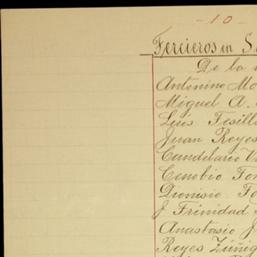 - 10 -
Tercieros en S
De la
Antonino Mo
Miguel A.
Luis Tesill
Juan Reyes
Candelario V
Eusebio Tor
Dionisio
J. Trinidad
Anastasio J
Reyes Zúñig